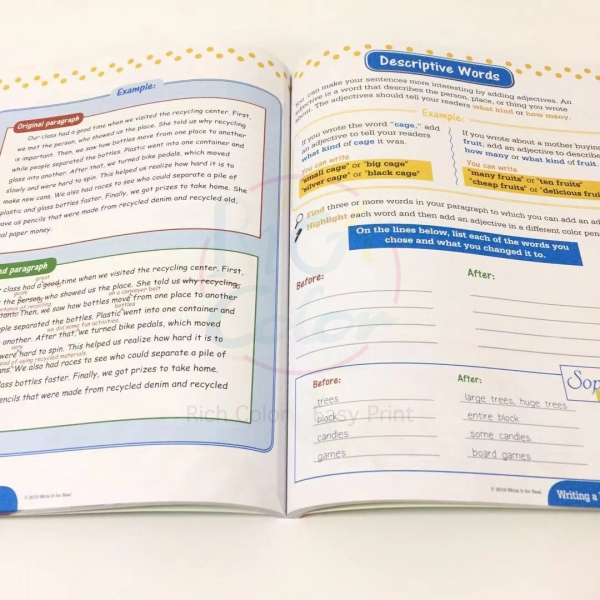 Example:
Original paragraph
Our class had a good time when we visited the recycling center. First,
we met the person, who showed us the place. She told us why recycling
is important. Then, we saw how bottles move from one place to another
while people separated the bottles. Plastic went into one container and
glass into another. After that, we turned bike pedals, which moved
slowly and were hard to spin. This helped us realize how hard it is to
make new cans. We also had races to see who could separate a pile of
plastic and glass bottles faster. Finally, we got prizes to take home. She
gave us pencils that were made from recycled denim and recycled old,
paper money.
paragraph
class had a good time when we visited the recycling center. First,
the person, who showed us the place. She told us why recycling
Then, we saw how bottles move from one place to another
on a conveyor belt
people separated the bottles. Plastic went into one container and
bottles
another. After that, we turned bike pedals, which moved
we did some fun activities.
very
were hard to spin. This helped us realize how hard it is to
instead of using recycled materials.
We also had races to see who could separate a pile of
glass bottles faster. Finally, we got prizes to take home.
pencils that were made from recycled denim and recycled
© 2019 Write It for Real
Descriptive Words
You can make your sentences more interesting by adding adjectives. An
adjective is a word that describes the person, place, or thing you wrote
about. The adjectives should tell your readers what kind or how many.
Example:
If you wrote the word "cage," add
an adjective to tell your readers
what kind of cage it was.
You can write
"small cage" or "big cage"
"silver cage" or "black cage"
If you wrote about a mother buying
fruit, add an adjective to describe
how many or what kind of fruit.
You can write
"many fruits" or "ten fruits"
"cheap fruits" or "delicious
Find three or more words in your paragraph to which you can add an
Highlight each word and then add an adjective in a different color
On the lines below, list each of the words you
chose and what you changed it to.
Before:
After:
Before:
After:
trees
large trees, huge trees
block
entire block
candies
some candies
games
board games
© 2019 Write It for Real
Writing a
Rich Color Easy Print
Color